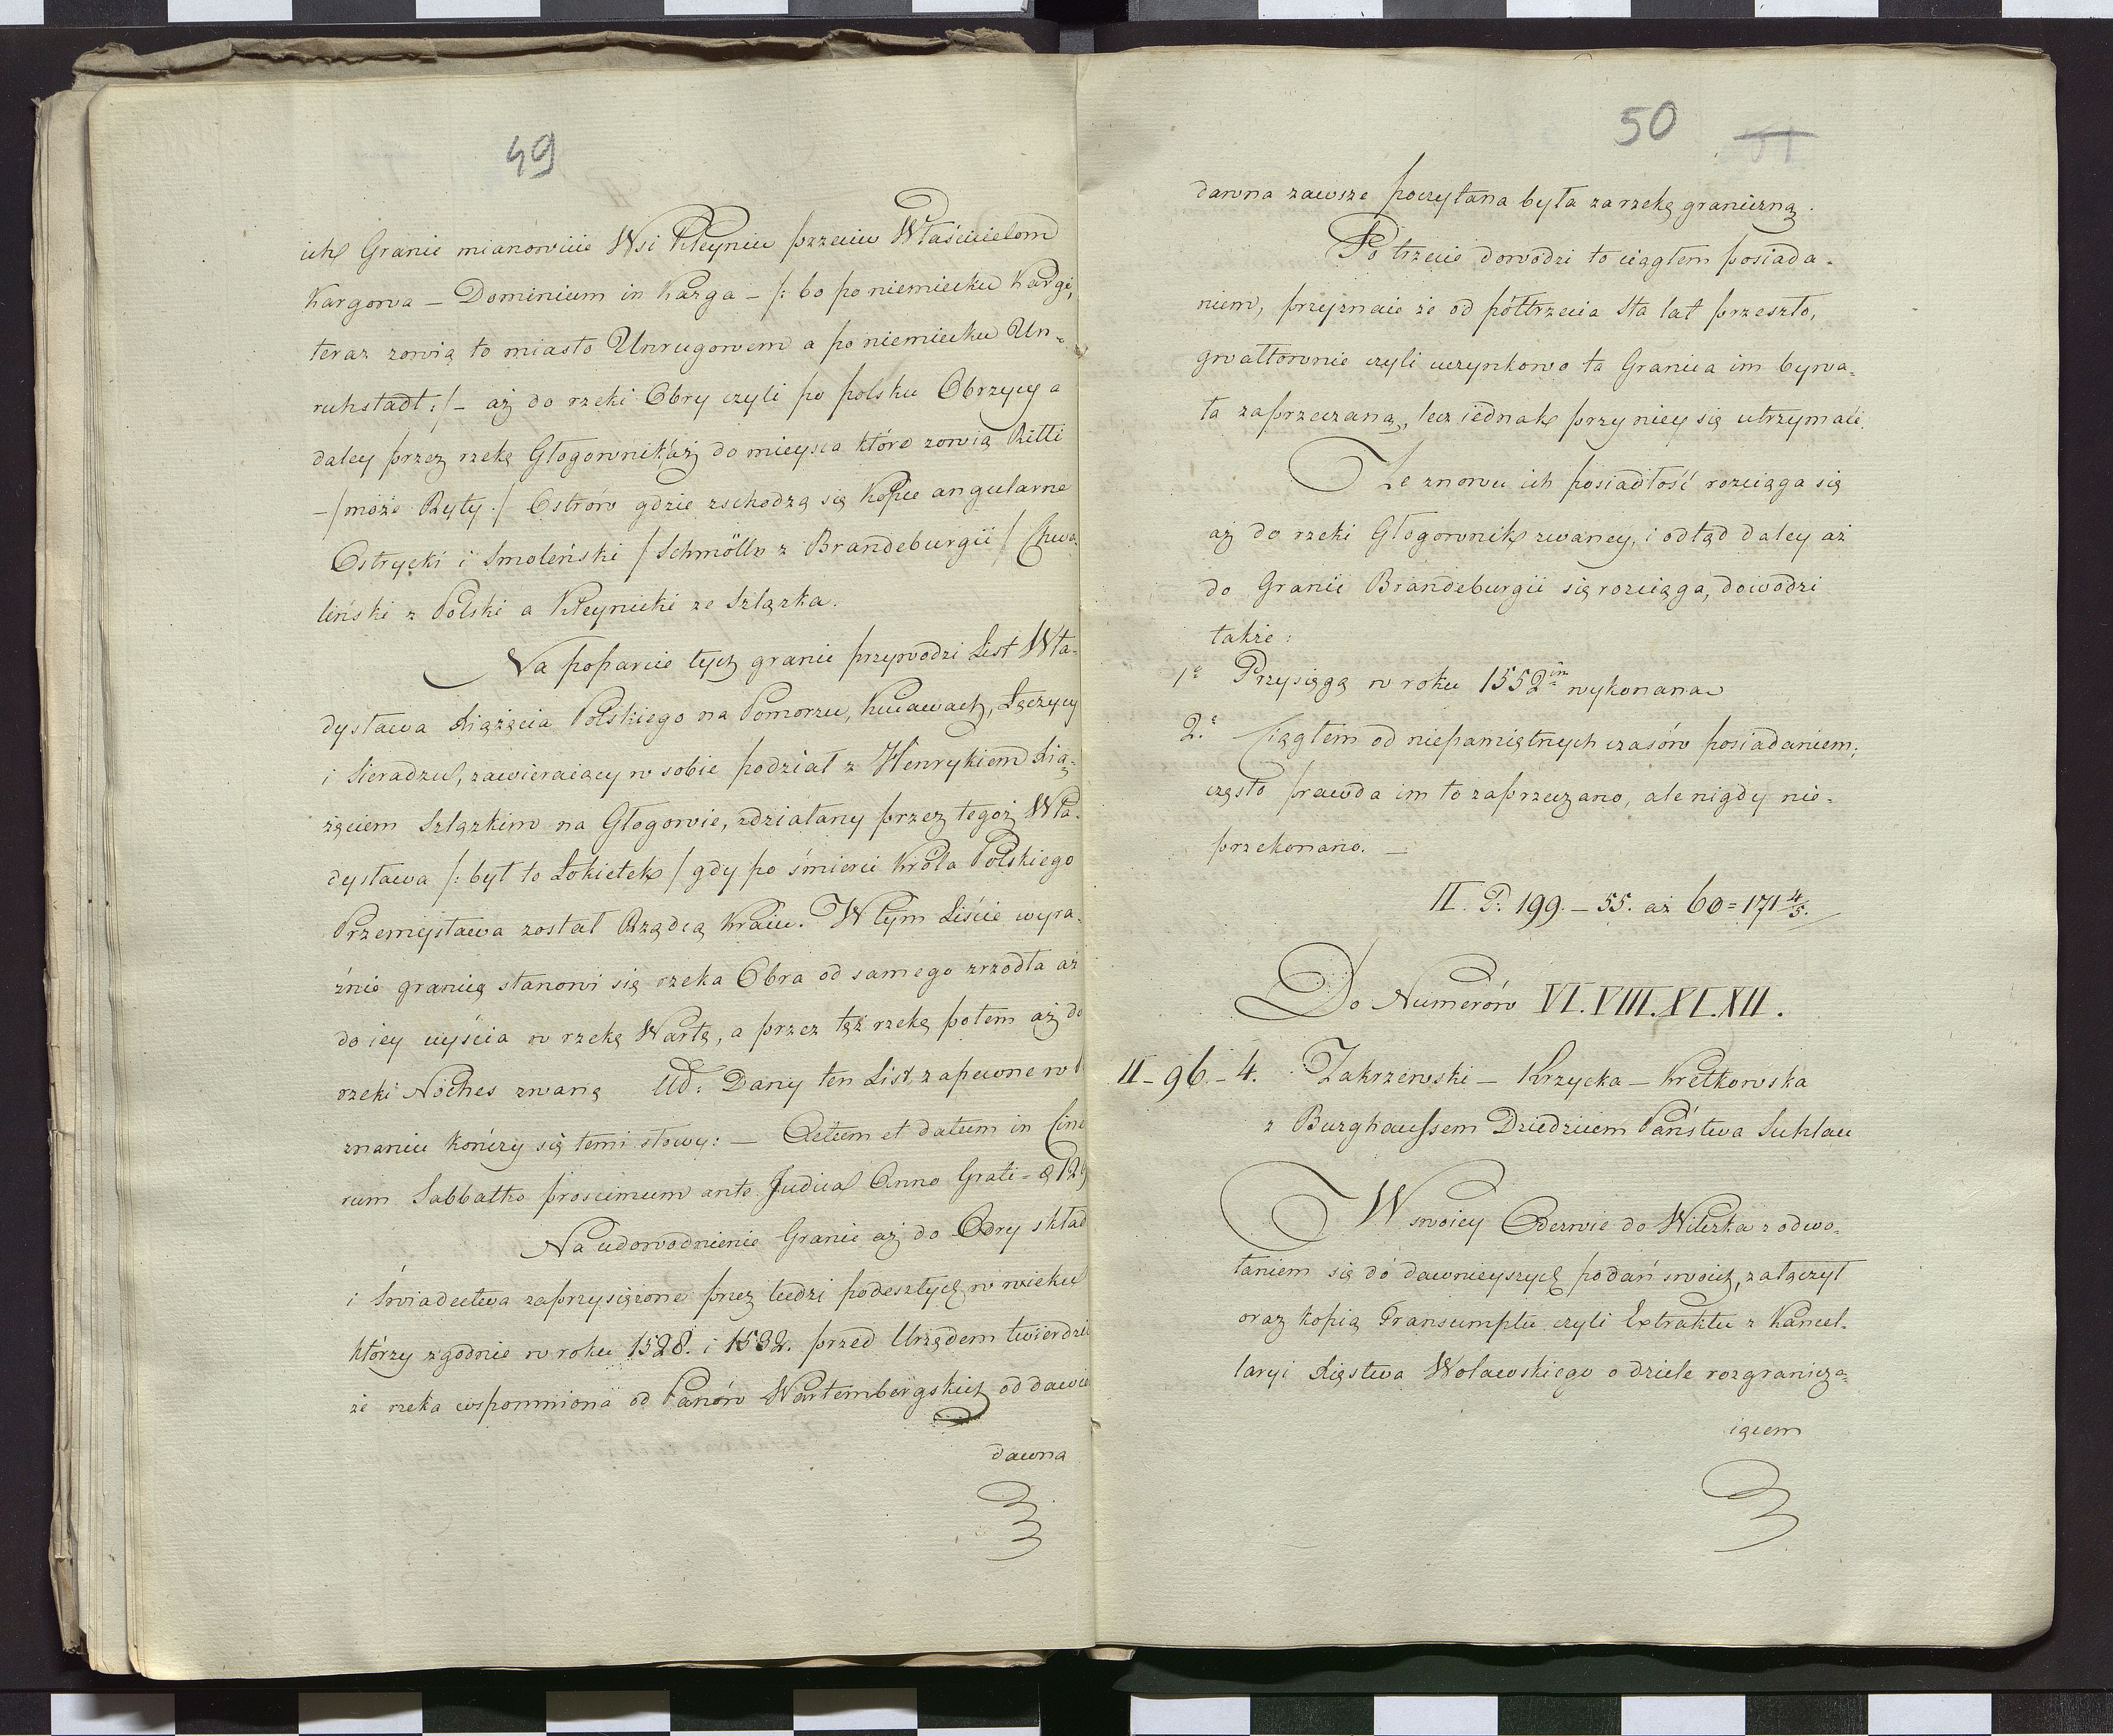 49
ich Granic mianowicie Wsi Kleynic przeciw Właścicielom
Kargowa – Dominium in Karga – /: bo po niemiecku Karge,
teraz zowią to miasto Unrugowem a po niemiecku Un-
ruhstadt :/ – aż do rzeki Obry czyli po polsku Obrzycy a
daley przez rzekę Głogownik aż do mieysca które zowią Ritti
– / może Ryty / Ostrów gdzie zschodzą się Kopce angularne
Ostrycki i Smoleński / Schmölln z Brandeburgii / Chwa-
liński z Polski a Kleynicki ze Szlązka.
Na poparcie tych granic przywodzi List Wła-
dysława Xiążęcia Polskiego na Pomorzu, Kuiawach, Łęczycy
i Sieradzu, zawieraiący w sobie podział z Henrykiem Xią-
żęciem Szlązkim na Głogowie, zdziałany przez tegoż Wła-
dysława /: był to Łokietek / gdy po śmierci Króla Polskiego
Przemysława został Rządcą Kraiu. W tym Liście wyra-
źnie granicą stanowi się rzeka Obra od samego zrzodła aż
do iey uyścia w rzekę Wartę, a przez tęż rzekę potem aż do
rzeki Noches zwaną Dany ten List, zapewne w
znaniu kończy się temi słowy: – Actum et datum in
rum Sabbatho proscimum ante Judica Anno Grati-
Na udowodnienie Granic aż do Odry skład
i Świadectwa zaprzysiężone przez ludzi podeszłych w wieku
którzy zgodnie w roku 1528. i 1532. przed Urzędem twierdzi
że rzeka wspomniona od Panów Wartembergskich od dawie
dawna
50
dawna zawsze poczytana była za rzekę graniczną.
Po trzecie dowodzi to ciągłem posiada-
niem, przyznaie że od półtrzecia sta lat przeszło,
gwałtownie czyli uczynkowo ta Granica im bywa-
ła zaprzeczaną, lecz iednak przy niey się utrzymali.
Ze znowu ich posiadłość rozciąga się
aż do rzeki Głogownik zwaney, i odtąd daley aż
do Granic Brandeburgii się rozciąga, dowodzi
także:
1o Przysięgą w roku 1552im wykonana
2o Ciągłem od niepamiętnych czasów posiadaniem,
często prawda im to zaprzeczano, ale nigdy nie-
przekonano. –
II. P. 199. – 55. aż 60 = 171 4/5.
Do Numerów VI. VIII. XI. XII.
II – 96. – 4. Zakrzewski – Krzycka – Kretkowska
z Burghaussem Dziedzicem Państwa Suhlau
W swoiey Odezwie do Wilczka z odwo-
łaniem się do dawnieyszych podań swoich, załączył
oraz kopią Transumptu czyli Extraktu z Kancel-
laryi Xięstwa Woławskiego o dziele rozgranicza-
iącem